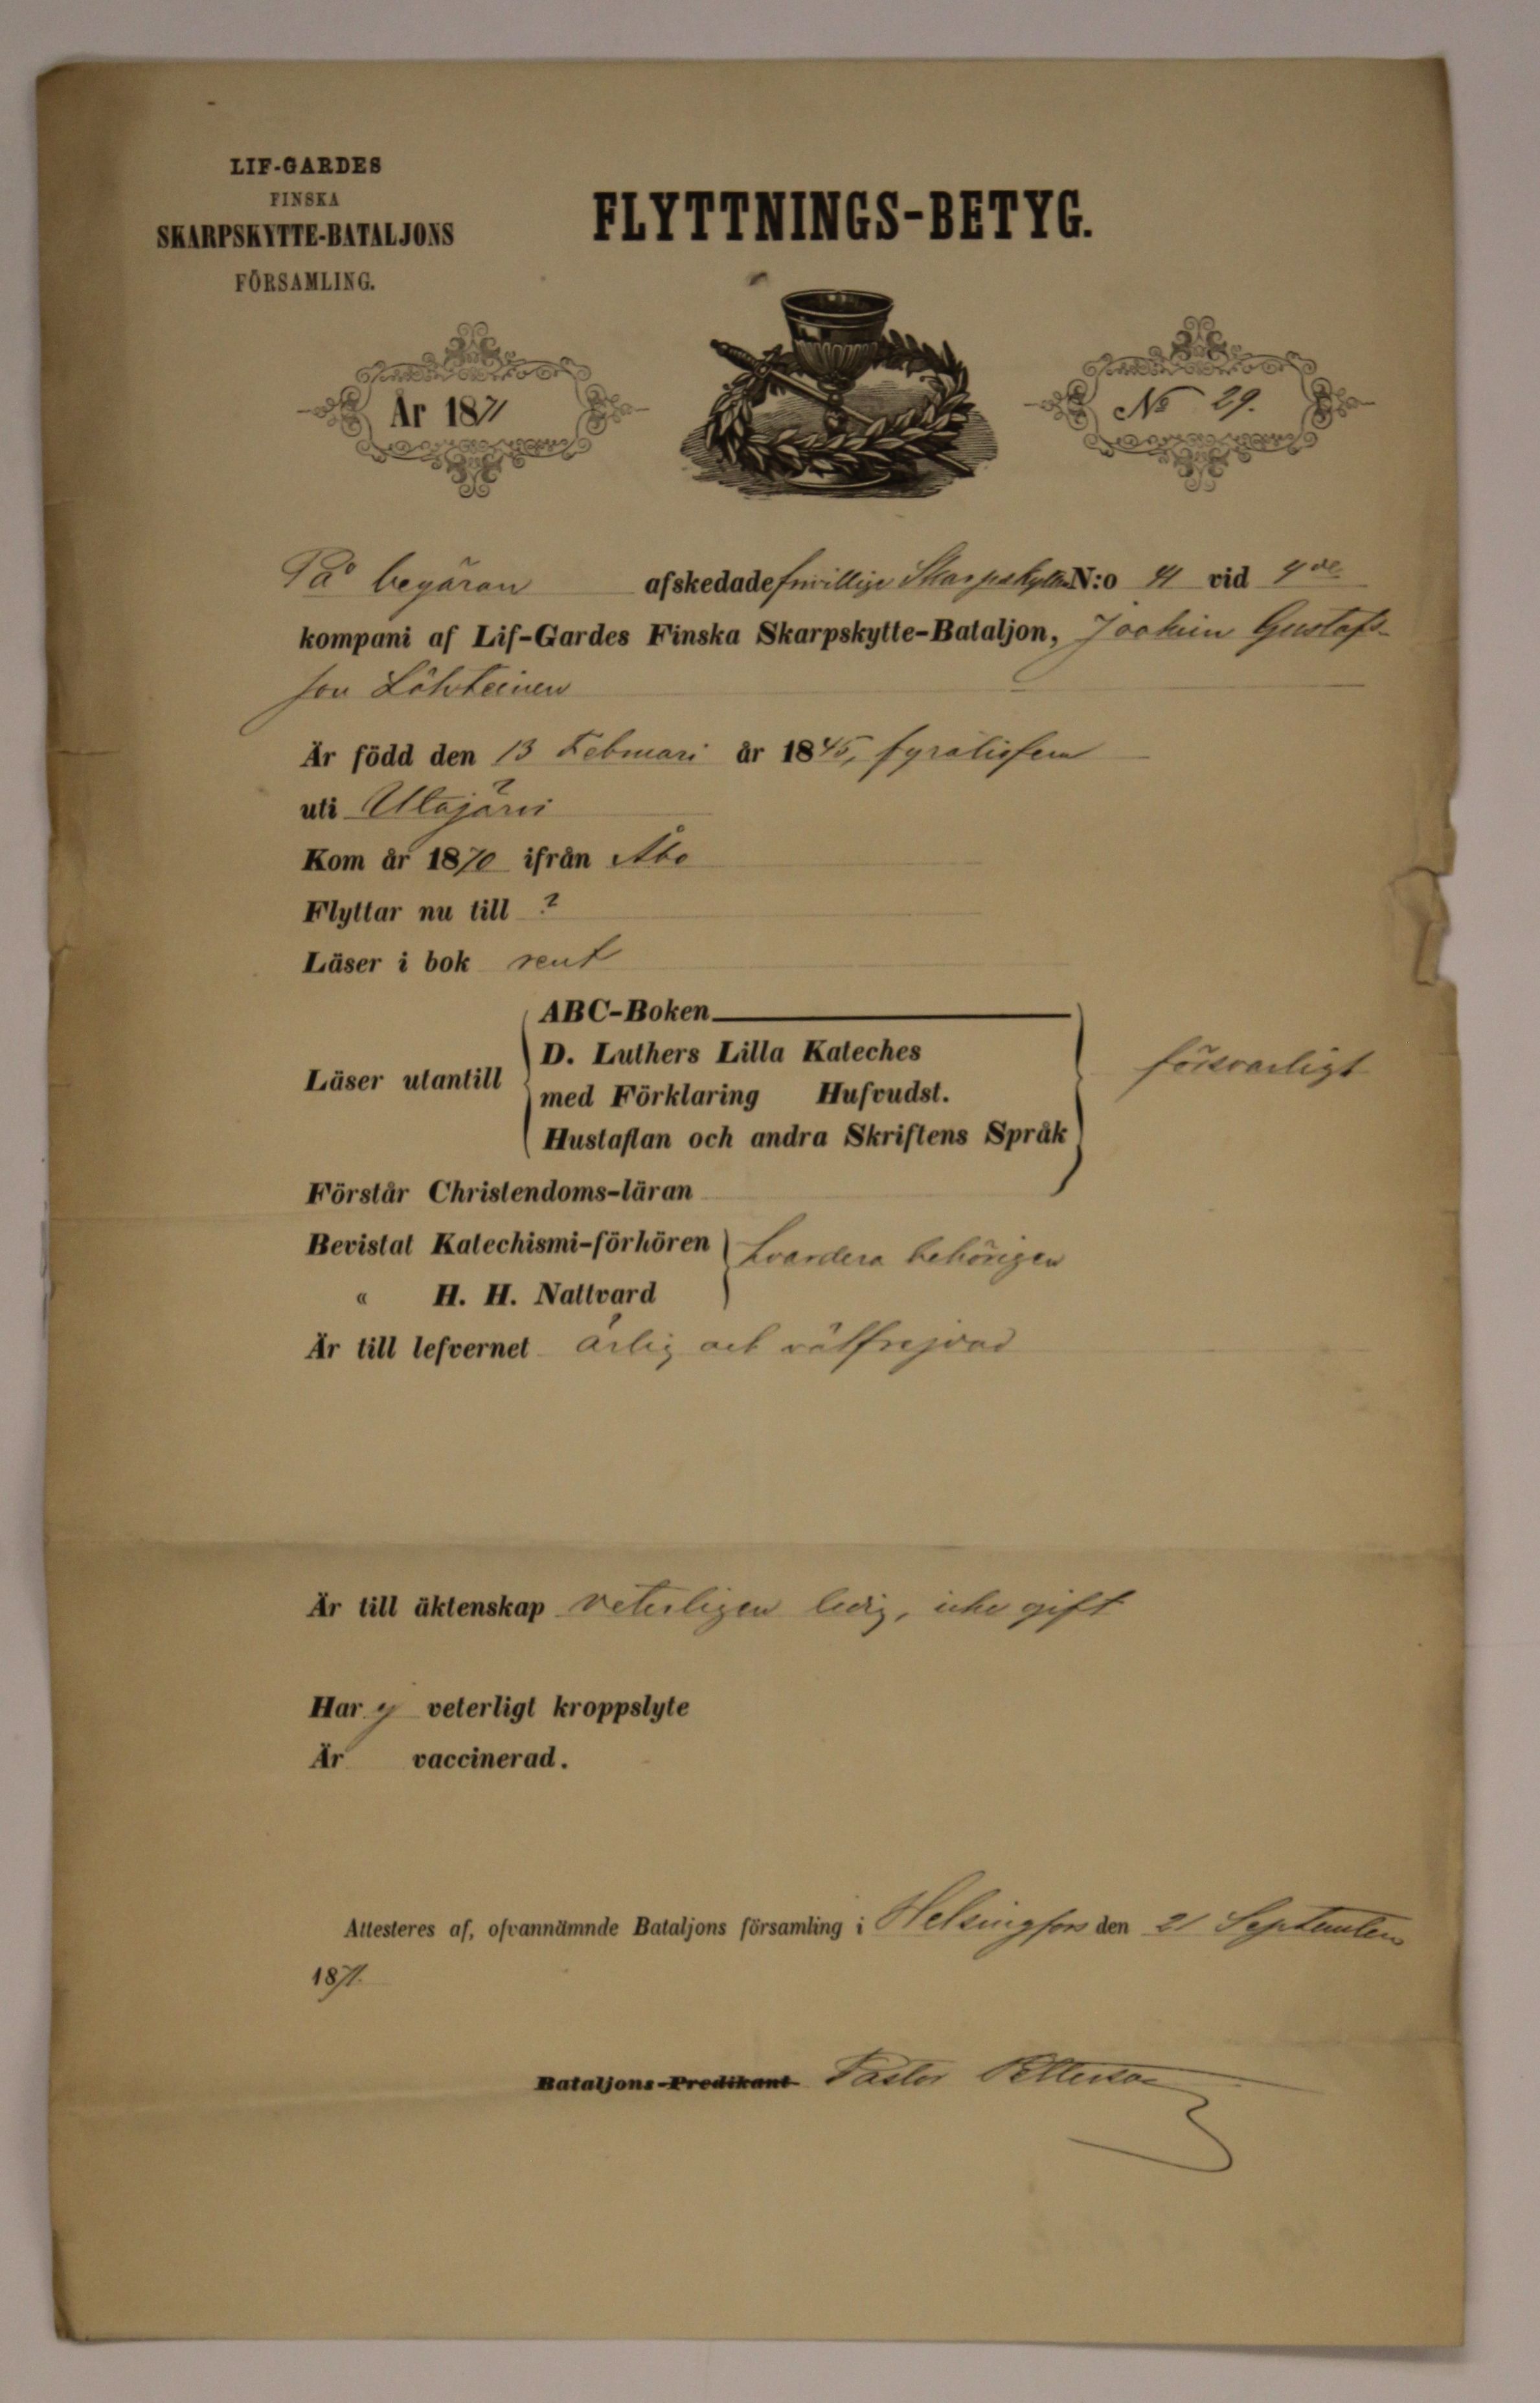 LIF-GARDES
FINSKA
SKARPSKYTTE-BATALJONS
FÖRSAMLING.
FLYTTNINGS-BETYG.
År 1871
No 29.
På begäran afskedade frivillige Skarpskytten N:o 41 vid 4de
kompani af Lif-Gardes Finska Skarpskytte-Bataljon, Joakim Gustafs-
son
Är född den 13 Februari år 1845, fyratiofem
uti Utajärvi
Kom år 1870 ifrån Åbo
Flyttar nu till ?
Läser i bok rent
Läser utantill
ABC-Boken
D. Luthers Lilla Kateches
med Förklaring Hufvudst.
Hustaflan och andra Skriftens Språk
försvarligt
Förstår Christendoms-läran
Bevistat Katechismi-förhören
hvardera behörigen
« H. H. Nattvard
Är till lefvernet ärlig och välfrejdad
Är till äktenskap veterligen ledig, icke gift
Har ej veterligt kroppslyte
Är vaccinerad.
Attesteres af, ofvannämnde Bataljons församling i Helsingfors den 21 September
1871.
Bataljons-Predikant Pastor